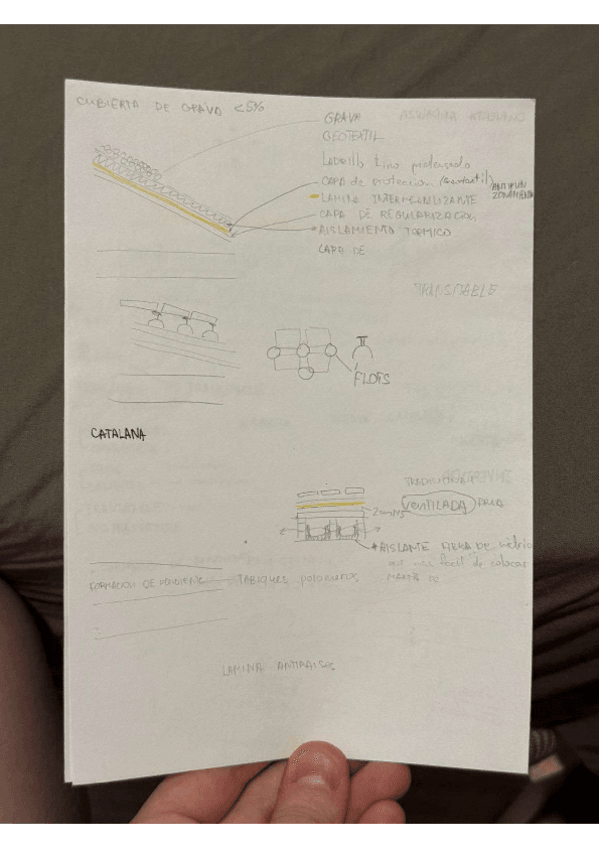 CUBIERTA DE GRAVA <5%
GRAVA
GEOTEXTIL
Ladrillo fino
CAPA de protección (Geotextil) ANTIPUNZONAMIENTO
LAMINA IMPERMEABILIZANTE
CAPA DE REGULARIZACIÓN
AISLAMIENTO TÉRMICO
CAPA DE
TRANSITABLE
FLOTS
CATALANA
VENTILADA
AISLANTE FIBRA DE vidrio
que más fácil de colocar
FORMACION DE PENDIENTE — TABIQUES palomeros
LAMINA ANTIRAICES